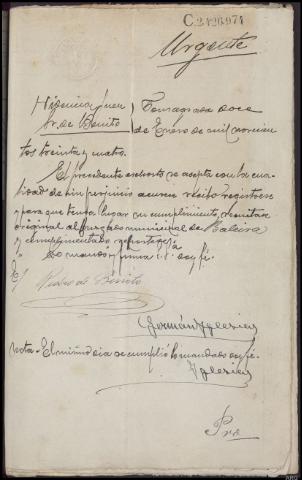 C.2426971
Urgente
Providencia Juez
Sr. de Benito
Fonsagrada doce
de Enero de mil novecien
tos treinta y cuatro.
El precedente exhorto se acepta con la cua
lidad de sin perjuicio acusese recibo registrese
y para que tenga lugar su cumplimiento, remitase
original al Juzgado municipal de Baleira
y cumplimentado reportese
Lo mandó y firma S.S. doy fé.
E/
Pedro de Benito
Germán Yglesias
Nota - El mismo dia se cumplió lo mandado doy fé.
Yglesias